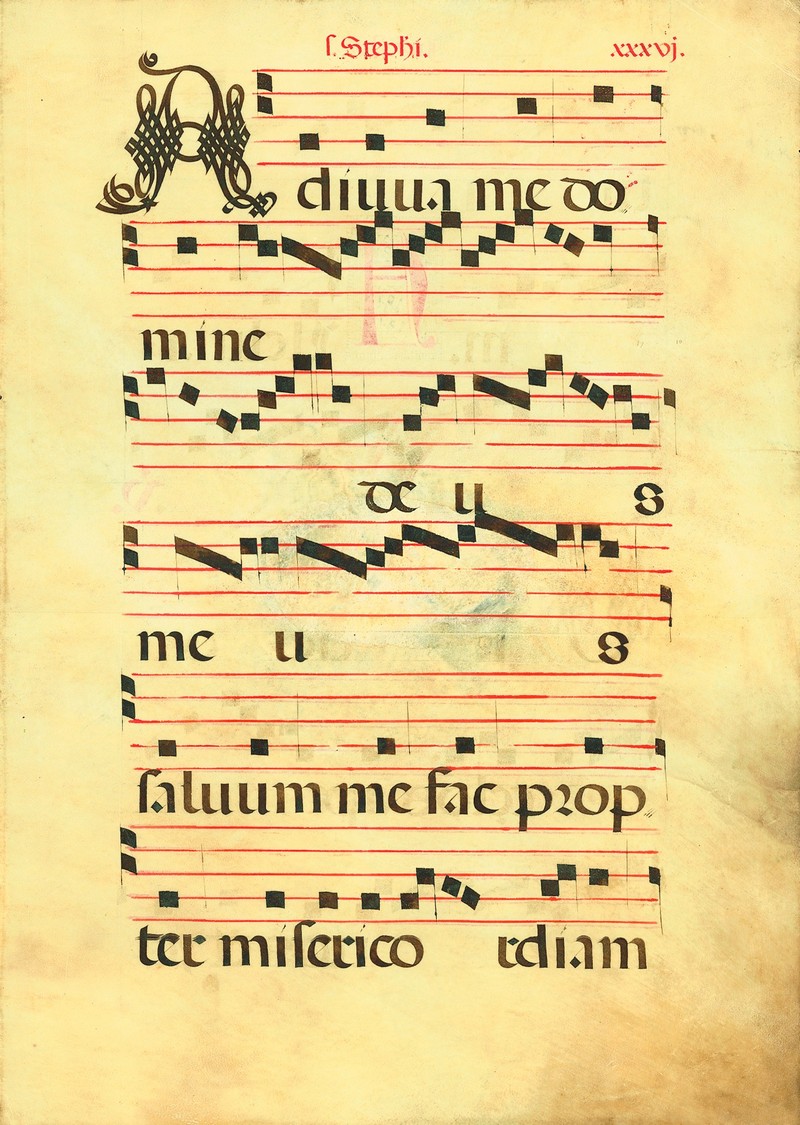 ſ. Stephi. xxxvj.
Adiuua me do
mine
de us
me us
ſaluum me fac prop
ter miſerico rdiam